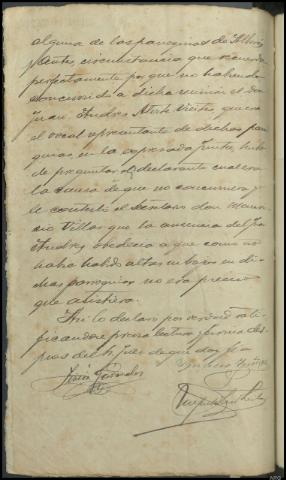 alguna de las parroquias de Alborj
y Antes, circunstancia que recuerda
perfectamente por que no habiendo
concurrido a dicha reunion el don
Juan Andres Neste Vieites, que era
el vocal representante de dichas parro
quias, en la expresada Junta, hubo
de preguntar el declarante cual era
la causa de que no concurriera y
le contestó el Secretario don Mauri
cio Villar que la ausencia del Juan
Andres obedecia a que como no
habia habido altas ni bajas en di
chas parroquias no era preciso
que asistiera.
Asi lo declara por verdad rati
ficandose previa lectura y firma des
pues del Sr Juez de que doy fe